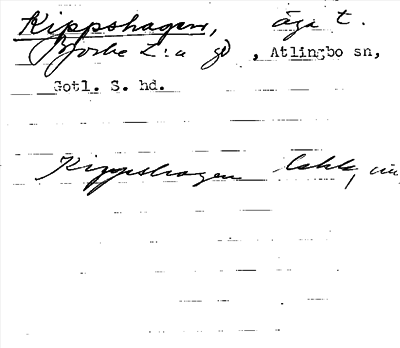 Kippshagen, äga t.
Bjerbe L:a gd, Atlingbo sn,
Gotl. S. hd.
Kippshagen